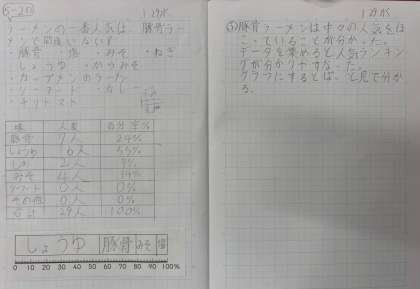 5-20
1分が
ラーメンの一番人気は、豚骨ラー
メンと間違いない。
・豚骨 ・塩 ・みそ ・ねぎ
・しょうゆ ・かつみそ
・カップメンのラーメン
・シーフード ・カレー
・チリトマト
味 人数 百分率%
豚骨 7人 24%
しょうゆ 16人 55%
しお 2人 7%
みそ 4人 14%
シーフード 0人 0%
その他 0人 0%
合計 29人 100%
しょうゆ 豚骨 みそ 塩
0 10 20 30 40 50 60 70 80 90 100%
1分が
豚骨ラーメンは中々の人気をほ
こっていることが分かった。
データを集めると人気ランキン
グが分かりやすくなった。
グラフにするとぱっと見で分か
る。